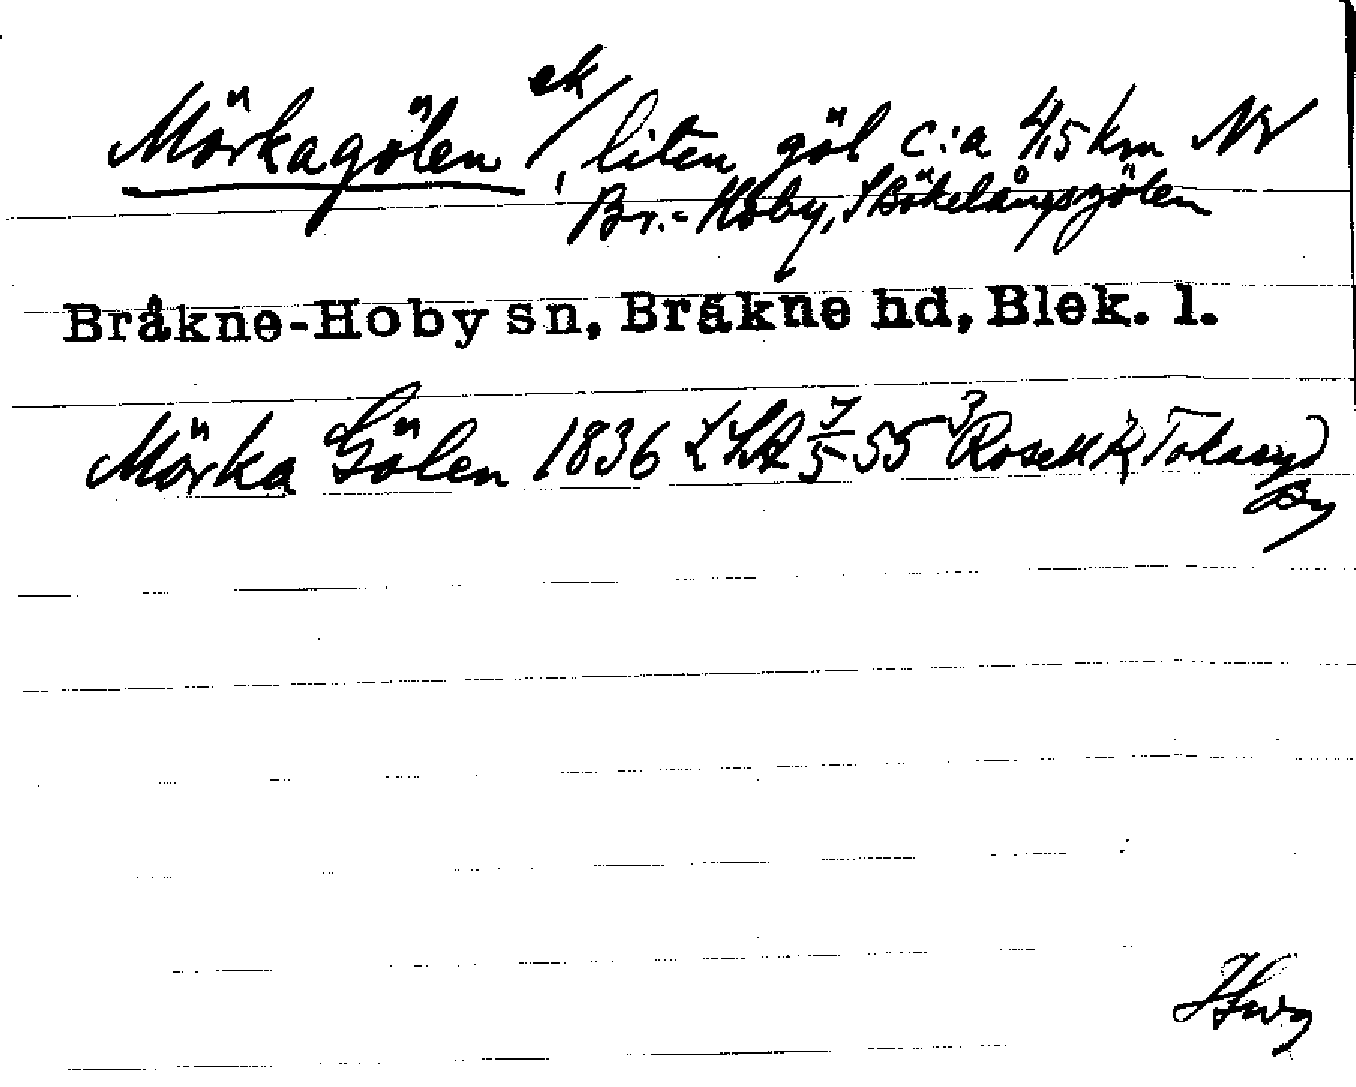 Mörkagölen ek/, liten göl c:a 4,5 km NV
Br.-Hoby, S Bökelångsgölen
Bråkne-Hoby sn, Bråkne hd, Blek. l.
Mörka Gölen 1836 LSA 7/5 55 3 K